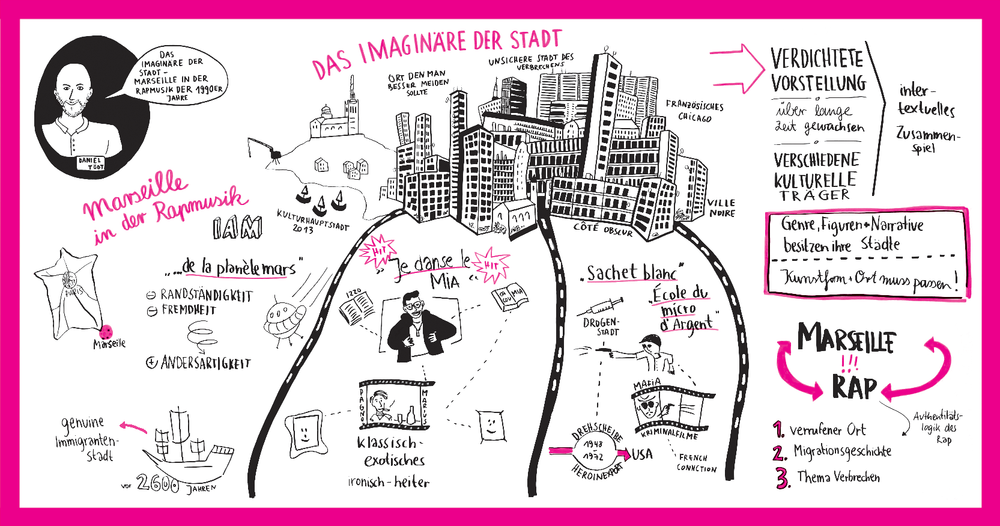 DAS IMAGINÄRE DER STADT
DAS
IMAGINÄRE DER
STADT -
MARSEILLE IN DER
RAPMUSIK DER 1990ER
JAHRE
DANIEL
TÖDT
Marseille
in der Rapmusik
ORT DEN MAN
BESSER MEIDEN
SOLLTE
UNSICHERE STADT DES
VERBRECHENS
FRANZÖSISCHES
CHICAGO
KULTURHAUPTSTADT
2013
CÔTÉ OBSCUR
VILLE
NOIRE
IAM
"...de la planète mars"
PARIS
Marseile
⊖ RANDSTÄNDIGKEIT
⊖ FREMDHEIT
⊕ ANDERSARTIGKEIT
genuine
Immigranten-
stadt
VOR 2600 JAHREN
HIT
"Je danse le
MIA"
HIT
IZZO
MIA
PAGNOL
MARIUS
klassisch-
exotisches
ironisch-heiter
"Sachet blanc"
"École du
micro
d'Argent"
DROGEN-
STADT
MAFIA
KRIMINALFILME
DREHSCHEIBE
1943
1972
HEROINEXPORT
USA
FRENCH
CONNCTION
VERDICHTETE
VORSTELLUNG
über lange
Zeit gewachsen
VERSCHIEDENE
KULTURELLE
TRÄGER
inter-
textuelles
Zusammen-
spiel
Genre, Figuren + Narrative
besitzen ihre Städte
Kunstform + Ort muss passen!
MARSEILLE
!!!
RAP
Authentitäts-
logik des
Rap
1. verrufener Ort
2. Migrationsgeschichte
3. Thema Verbrechen